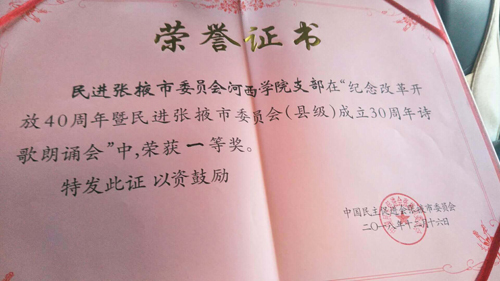 荣誉证书
民进张掖市委员会河西学院支部在“纪念改革开
放40周年暨民进张掖市委员会(县级)成立30周年诗
歌朗诵会”中,荣获一等奖。
特发此证 以资鼓励
中国民主促进会张掖市委员会
二〇一八年十二月十六日